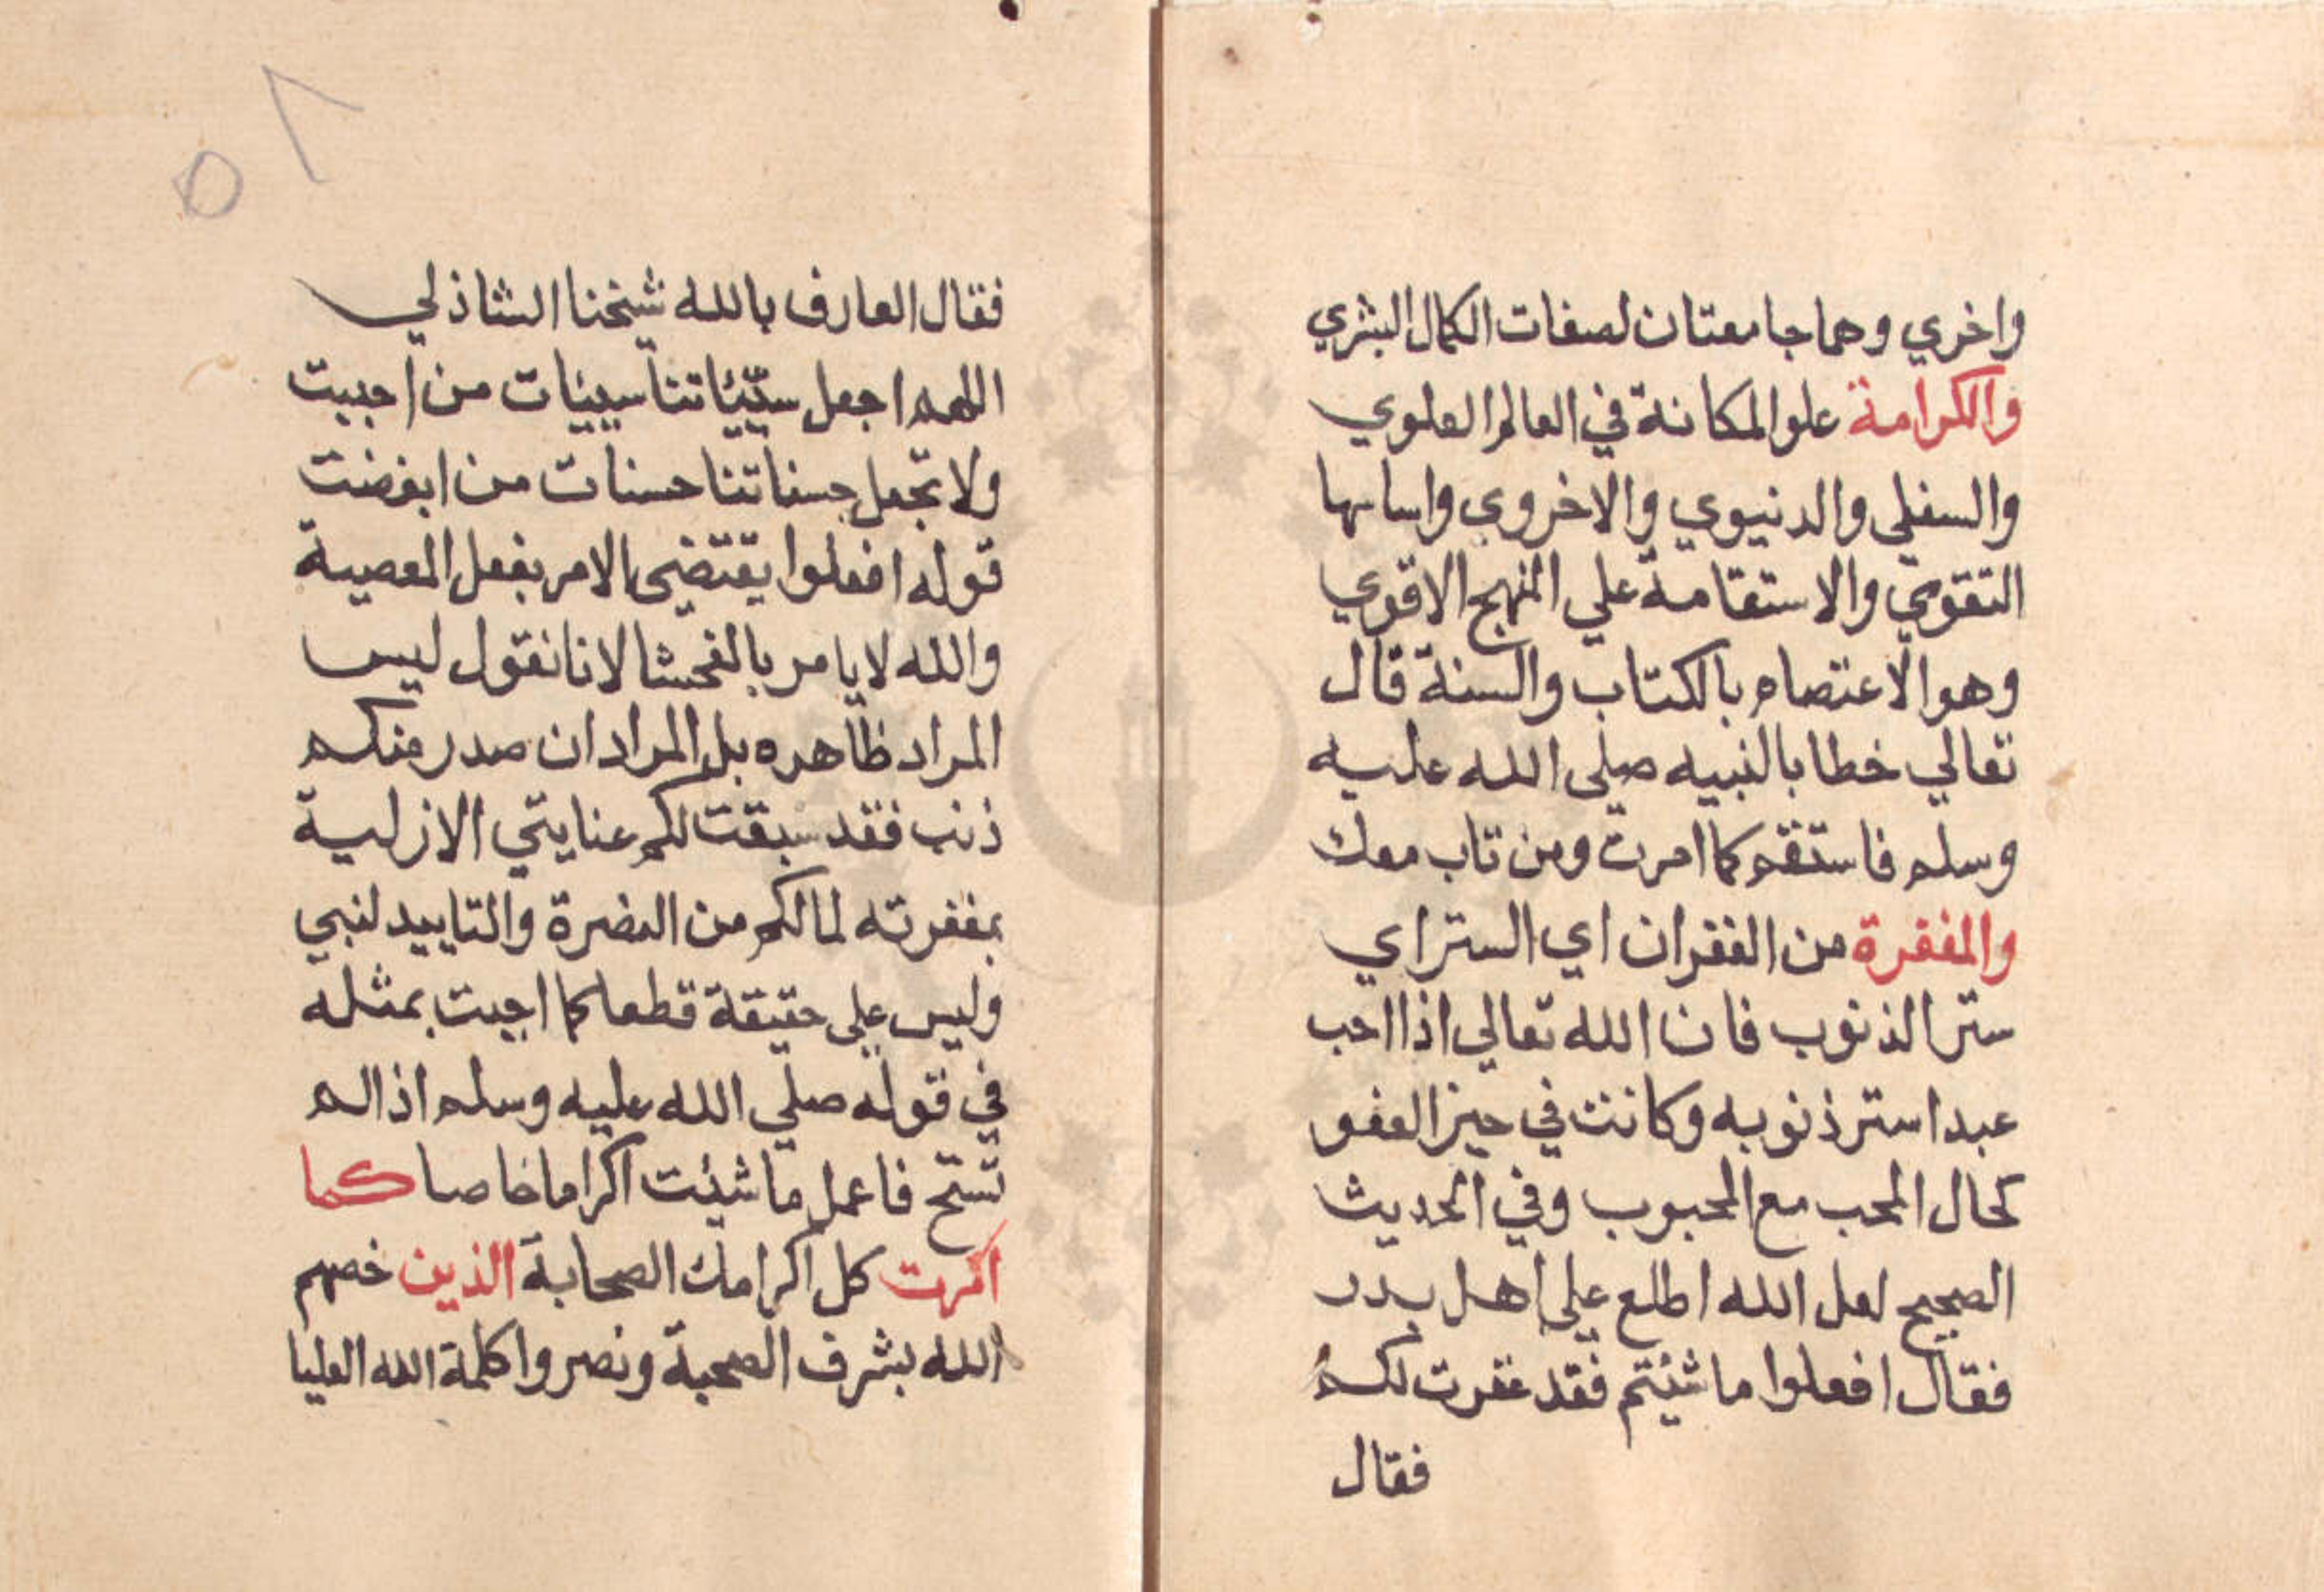 واخري وهما جامعتان لصفات الكمال البشري
والكرامة علو المكانة في العالم العلوي
والسفلي والدنيوي والاخروي واساسها
التقوي والاستقامة علي المنهج الاقوي
وهو الاعتصام بالكتاب والسنة قال
تعالي خطابا لنبيه صلي الله عليه
وسلم فاستقم كما امرت ومن تاب معك
والمغفرة من الغفران اي الستر اي
ستر الذنوب فان الله تعالي اذا احب
عبدا ستر ذنوبه وكانت في حيز العفو
كحال المحب مع المحبوب وفي الحديث
الصحيح لعل الله اطلع علي اهل بدر
فقال افعلوا ما شئتم فقد غفرت لكم
فقال
٥١
فقال العارف بالله شيخنا الشاذلي
اللهم اجعل سيّئاتنا سيئات من احببت
ولا تجعل حسناتنا حسنات من ابغضت
قوله افعلوا يقتضي الامر بفعل المعصية
والله لا يامر بالفحشا لانا نقول ليس
المراد ظاهره بل المراد ان صدر منكم
ذنب فقد سبقت لكم عنايتي الازلية
بمغفرته لما لكم من النصرة والتاييد لنبي
وليس علي حقيقة قطعا كما اجبت بمثله
في قوله صلي الله عليه وسلم اذا لم
تستح فاعمل ما شئت اكراما خاصا كما
اكرمت كل اكرامك الصحابة الذين خصهم
الله بشرف الصحبة ونصروا كلمة الله العليا